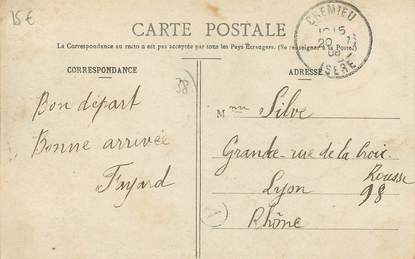 15€
CARTE POSTALE
La Correspondance au recto n'est pas acceptée par tous les Pays Étrangers. (Se renseigner à la Poste)
CORRESPONDANCE
ADRESSE
CREMIEU
20
08
ISÈRE
38)
Bon départ
Bonne arrivée
Fayard
Mme Silve
Grande rue de la Croix
Rousse
98
Lyon
Rhône